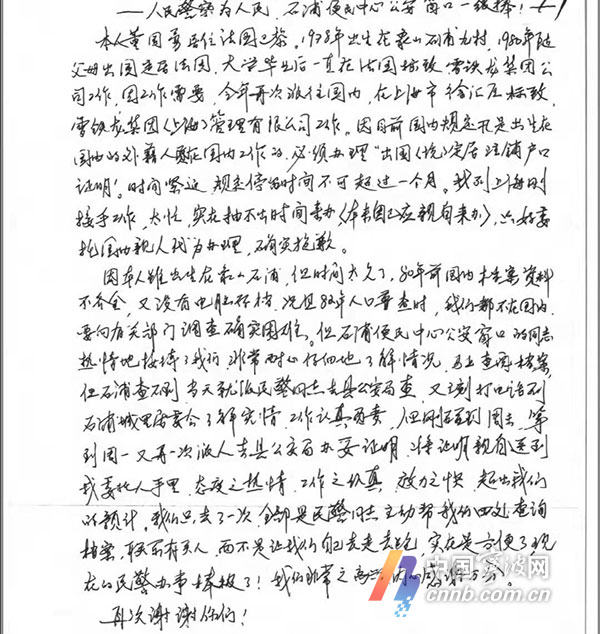 ——人民警察为人民,石浦便民中心公安窗口一级棒!
本人董国 居住法国巴黎。1978年出生在象山石浦 村,1980年随
父母出国定居法国,大学毕业后一直在法国标致雪铁龙集团公
司工作,因工作需要,今年再次派往国内,在上海市徐汇区标致
雪铁龙集团(上海)管理有限公司工作。因目前国内规定凡是出生在
国内的外籍人 在国内工作的,必须办理"出国(境)定居注销户口
证明"。时间紧迫,规定停留时间不可超过一个月。我到上海刚
接手工作,太忙,实在抽不出时间来办(本来自己应亲自来办),只好委
托国内亲人代为办理,确实抱歉。
因本人虽出生在象山石浦,但时间太久了,80年前国内档案资料
不齐全,又没有电脑存档,况且82年人口普查时,我们都不在国内,
要向有关部门调查确实困难。但石浦便民中心公安窗口的同志
热情地接待了我们,非常耐心仔细地了解情况,马上查阅档案,
但石浦查不到,当天就派民警同志去县公安局查,又 打电话到
石浦城里居委会了解实情,工作认真负责,但刚 到周末,等
到周一又再一次派人去县公安局办妥证明,将证明亲自送到
我委托人手里,态度之热情,工作之认真,效力之快,超出我们
的预计。我们只去了一次,全都是民警同志主动帮我们四处查询
档案,联系有关人,而不是让我们自己去走去跑,实在是方便了,现
在的民警办事棒极了!我们非常之高兴,内心感谢万分。
再次谢谢你们!
中国宁波网
www.cnnb.com.cn